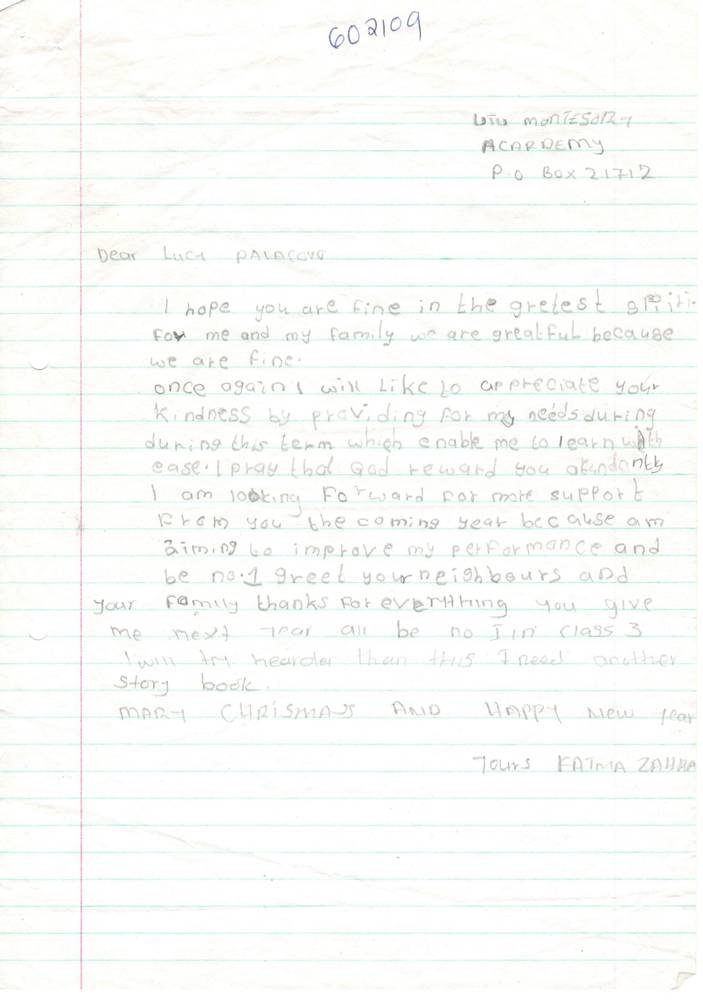 602109
UTU MONTESORY
ACARDEMY
P.O BOX 21712
Dear Lucy
I hope you are fine in the gretest
For me and my family we are greatful because
we are fine.
once again I will like to appreciate your
kindness by providing for my needs during
during this term which enable me to learn with
ease. I pray that God reward you
I am looking forward for more support
from you the coming year because am
aiming to improve my performance and
be no.1 greet your neighbours and
your family thanks for everything you give
me next year all be no I in class 3
I will try hearder than this I need another
story book.
MARY CHRISMAS AND HAPPY New year
Yours FATMA ZAHRA